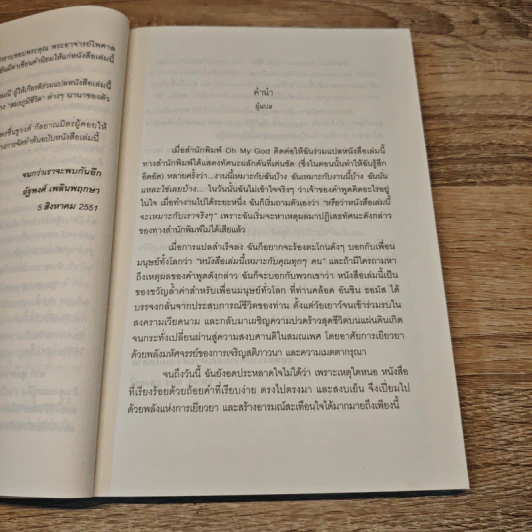 กราบขอบพระคุณ พระอาจารย์ไพศาล
นมีค่าเขียนคำนิยมให้แก่หนังสือเล่มนี้
ณี ผู้ให้เกียรติร่วมแปลหนังสือเล่มนี้
าง "สมรภูมิชีวิต" ต่างๆ นานาของตัว
พรชื่นชูวงศ์ กัลยาณมิตรผู้คอยให้
ารการจัดทำต้นฉบับหนังสือเล่มนี้
จนกว่าเราจะพบกันอีก
อัฐพงศ์ เพลินพฤกษา
5 สิงหาคม 2551
คำนำ
ผู้แปล
เมื่อสำนักพิมพ์ Oh My God ติดต่อให้ฉันร่วมแปลหนังสือเล่มนี้
ทางสำนักพิมพ์ได้แสดงทัศนะผลักดันที่เด่นชัด (ซึ่งในตอนนั้นทำให้ฉันรู้สึก
อึดอัด) หลายครั้งว่า...งานนี้เหมาะกับฉันบ้าง ฉันเหมาะกับงานนี้บ้าง ฉันนั่น
แหละใช่เลยบ้าง... ในวันนั้นฉันไม่เข้าใจจริงๆ ว่าเจ้าของคำพูดคิดอะไรอยู่
ในใจ เมื่อทำงานไปได้ระยะหนึ่ง ฉันก็เริ่มถามตัวเองว่า "หรือว่าหนังสือเล่มนี้
จะเหมาะกับเราจริงๆ" เพราะฉันเริ่มจะหาเหตุผลมาปฏิเสธทัศนะดังกล่าว
ของทางสำนักพิมพ์ไม่ได้เสียแล้ว
เมื่อการแปลสำเร็จลง ฉันก็อยากจะร้องตะโกนดังๆ บอกกับเพื่อน
มนุษย์ทั้งโลกว่า "หนังสือเล่มนี้เหมาะกับคุณทุกๆ คน" และถ้ามีใครถามหา
ถึงเหตุผลของคำพูดดังกล่าว ฉันก็จะบอกกับพวกเขาว่า หนังสือเล่มนี้เป็น
ของขวัญล้ำค่าสำหรับเพื่อนมนุษย์ทั่วโลก ที่ท่านคล็อด อันชิน ธอมัส ได้
บรรจงกลั่นจากประสบการณ์ชีวิตของท่าน ตั้งแต่วัยเยาว์จนเข้าร่วมรบใน
สงครามเวียดนาม และกลับมาเผชิญความปวดร้าวสุดชีวิตบนแผ่นดินเกิด
จนกระทั่งเปลี่ยนผ่านสู่ความสงบศานติในสมณเพศ โดยอาศัยการเยียวยา
ด้วยพลังมหัศจรรย์ของการเจริญสติภาวนา และความเมตตากรุณา
จนถึงวันนี้ ฉันยังอดประหลาดใจไม่ได้ว่า เพราะเหตุใดหนอ หนังสือ
ที่เรียงร้อยด้วยถ้อยคำที่เรียบง่าย ตรงไปตรงมา และสงบเย็น จึงเปี่ยมไป
ด้วยพลังแห่งการเยียวยา และสร้างอารมณ์สะเทือนใจได้มากมายถึงเพียงนี้